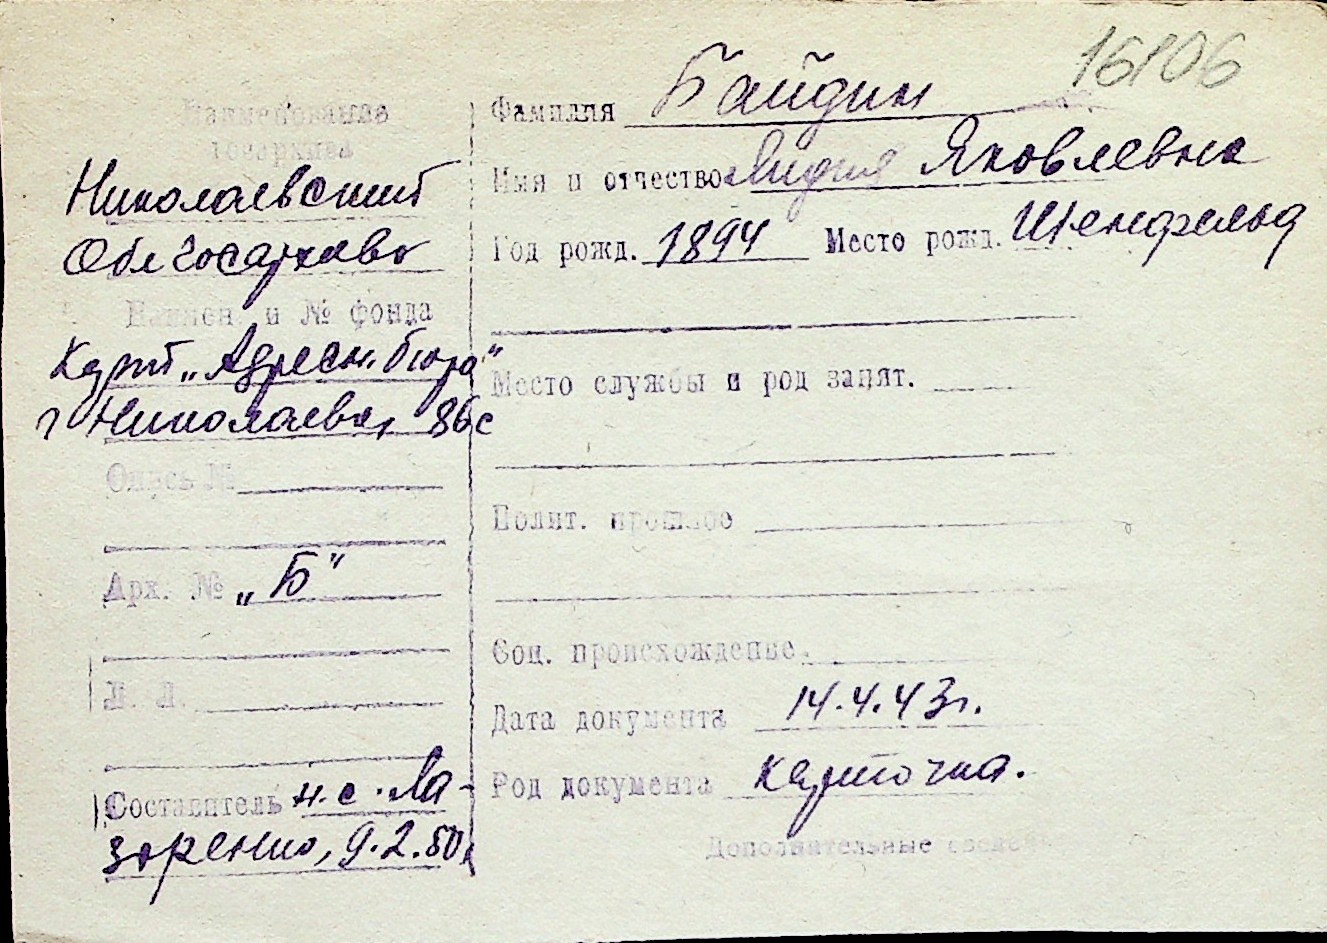 16106
Наименование
госархива
Николаевский
Облгосархив
Наимен. и № фонда
Карт. „Адресн. бюро"
г Николаева, 86с
Опись №
Арх. № „Б"
Л. Л.
Составитель н.с. Ла-
зоренко, 9.2.50г
Фамилия Байдин
Имя и отчество Лидия Яковлевна
Год рожд. 1894 Место рожд. Шенфельд
Место службы и род занят.
Полит. прошлое
Соц. происхождение
Дата документа 14.4.43г.
Род документа карточка.
Дополнительные сведен